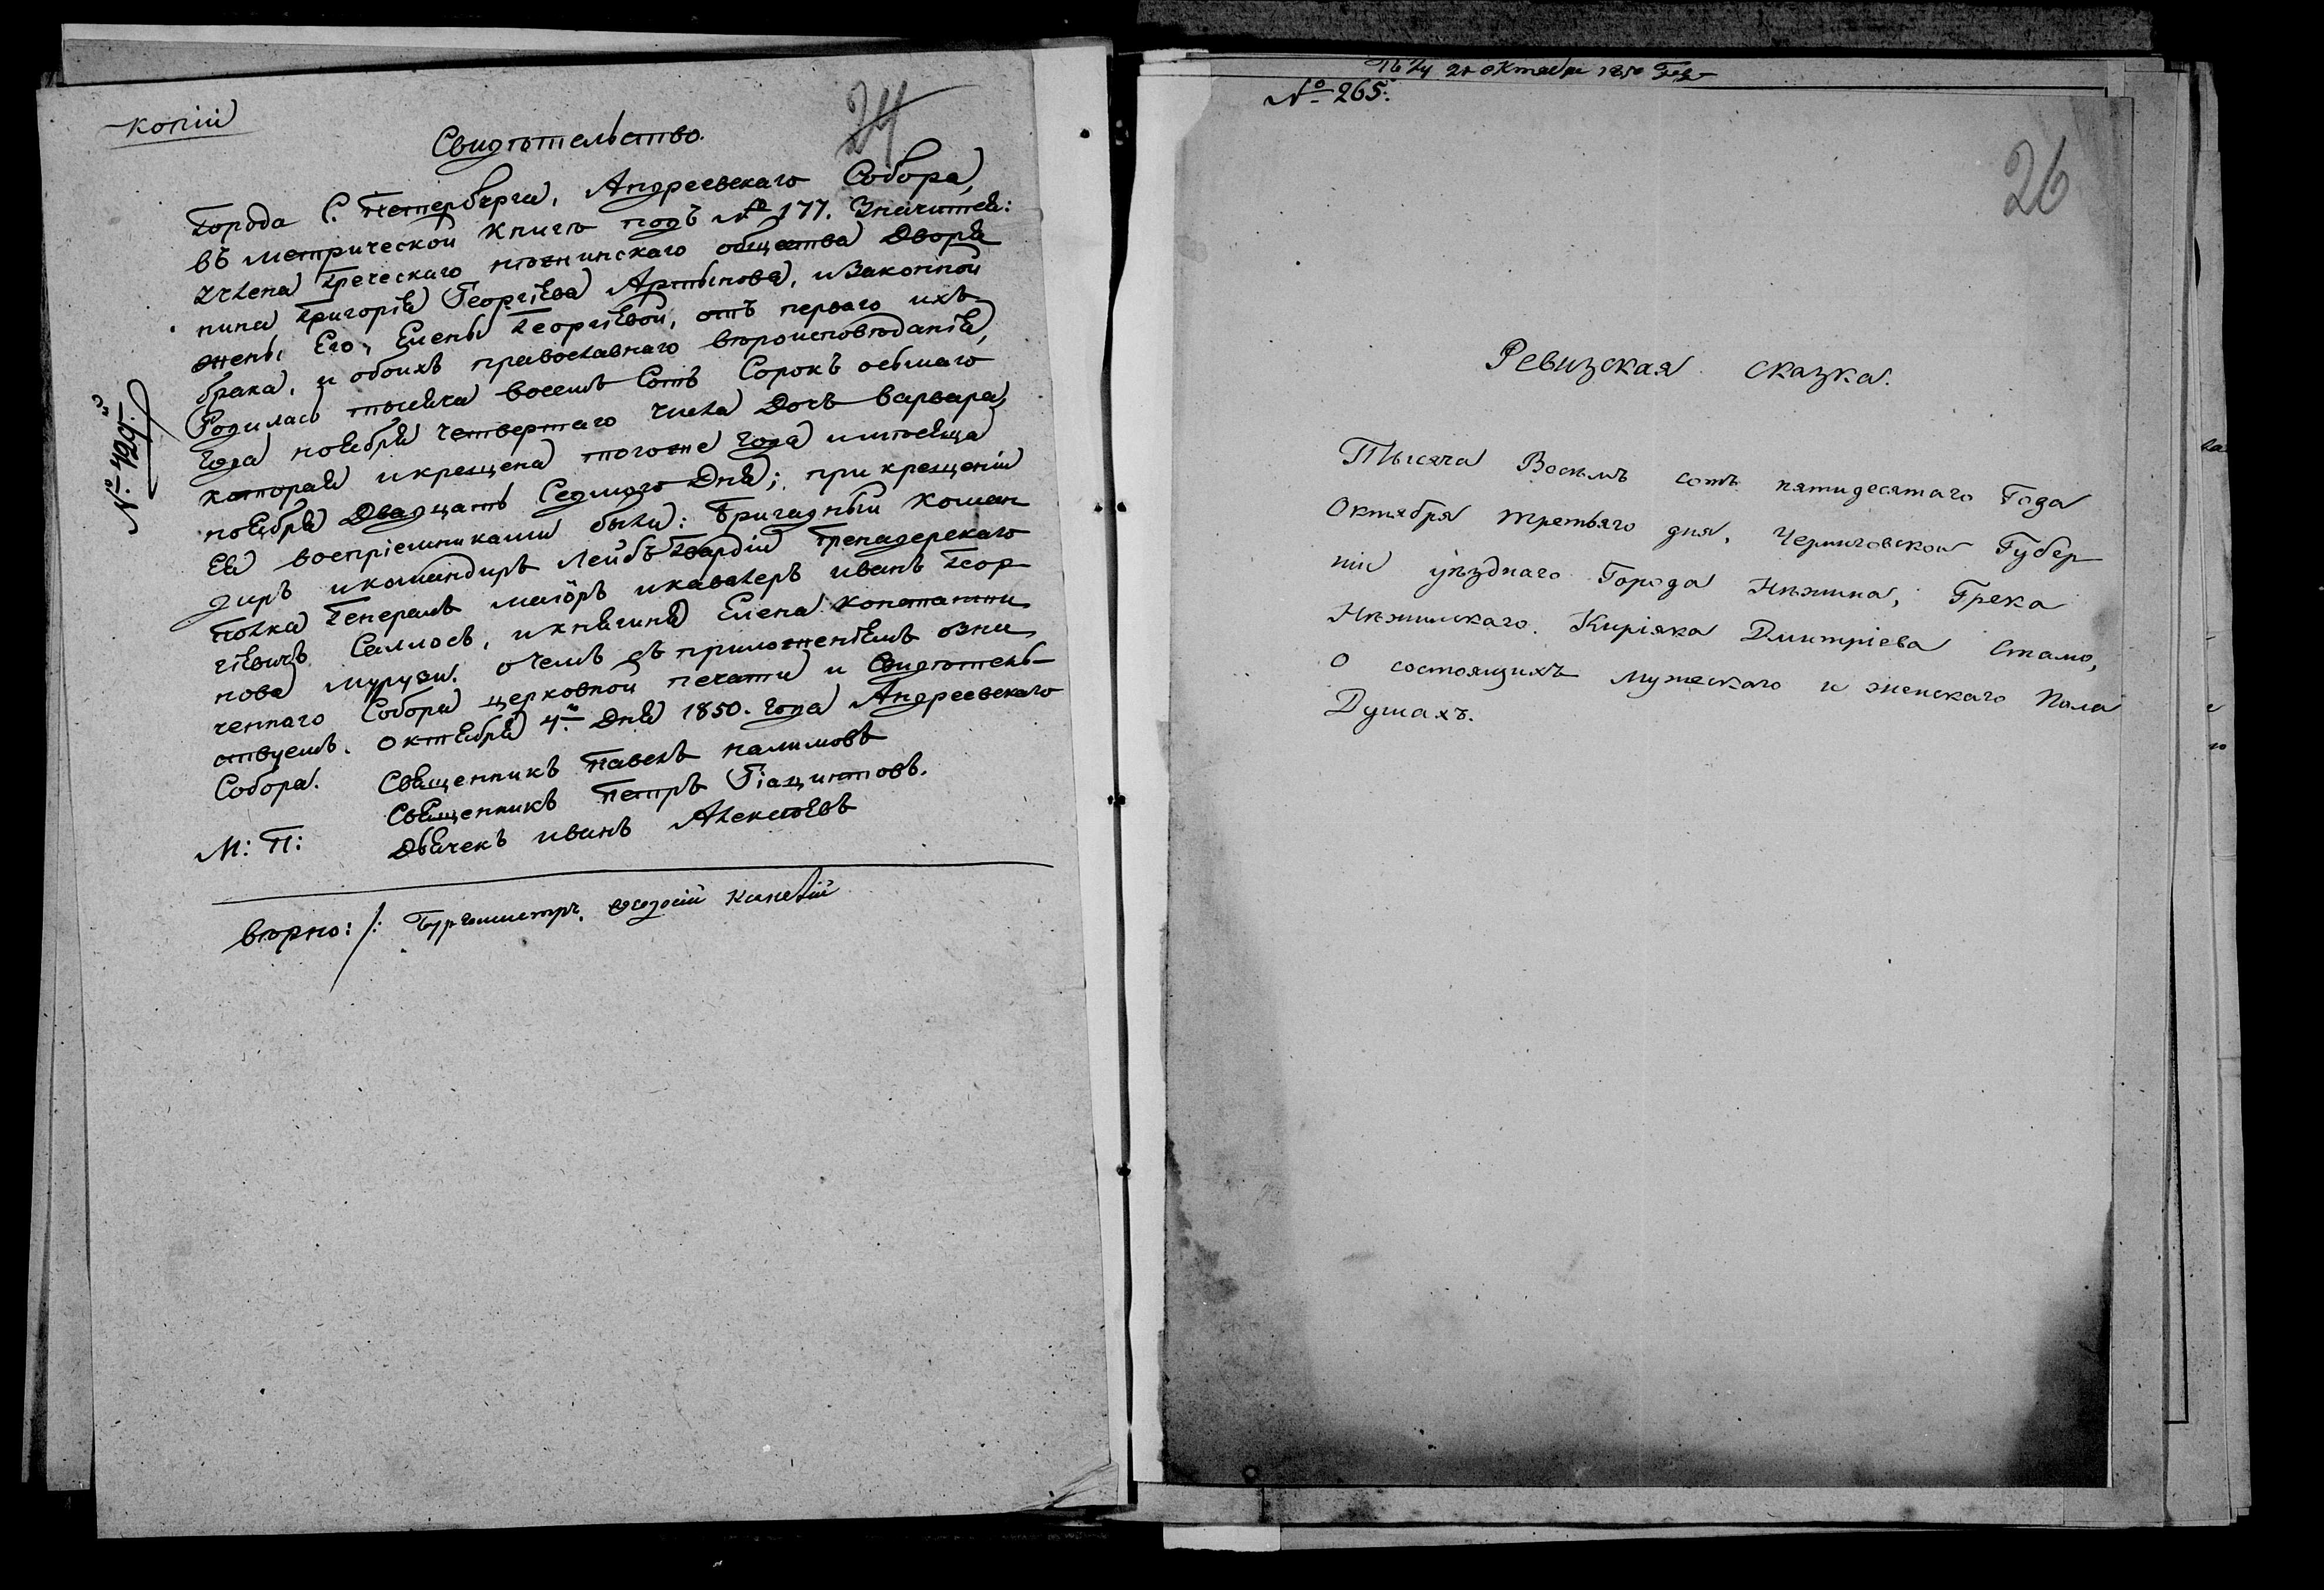 копіи
24
Свидѣтельство.
Города С. Петербурга, Андреевскаго Собора,
въ метрической книгѣ подъ № 177. Значится:
Члена Греческаго нѣжинскаго общества Дворя
нина Григорія Георгіева Артынова, и Законной
жены Его, Елены Георгіевой, отъ перваго ихъ
брака, и обоихъ православнаго вѣроисповѣданія,
Родилась тысяча восемь Сотъ Сорокъ осьмаго
Года ноября Четвертаго числа Дочь Варвара,
которая и крещена тогоже Года и мѣсяца
ноября Двадцать Седмаго Дня; при крещеніи
Ея воспріемниками были: Бригадный коман
диръ и командиръ Лейбъ Гвардіи Гренадерскаго
Полка Генералъ маіоръ и кавалеръ иванъ Геор
гіевичъ Саллосъ, и княгиня Елена константи
нова мурузи. о чемъ съ приложеніемъ озна
ченнаго Собора церковной печати и Свидѣтель-
ствуемъ. Октября 4го Дня 1850. Года Андреевскаго
Собора. Священникъ Павелъ налимовъ
Священникъ Петръ Гіацинтовъ.
М: П: Дьячекъ иванъ Алексѣевъ
вѣрно: /: Бургомистръ
№ 499й
21 Октября 1850 Года
№ 265.
26
Ревизская сказка.
Тысяча Восемь сотъ пятидесятаго Года
Октября третьяго дня, Черниговской Губер
ніи уѣзднаго Города Нѣжина, Грека
Нѣжинскаго Киріяка Дмитріева Стамо,
О состоящихъ мужескаго и женскаго Пола
Душахъ.